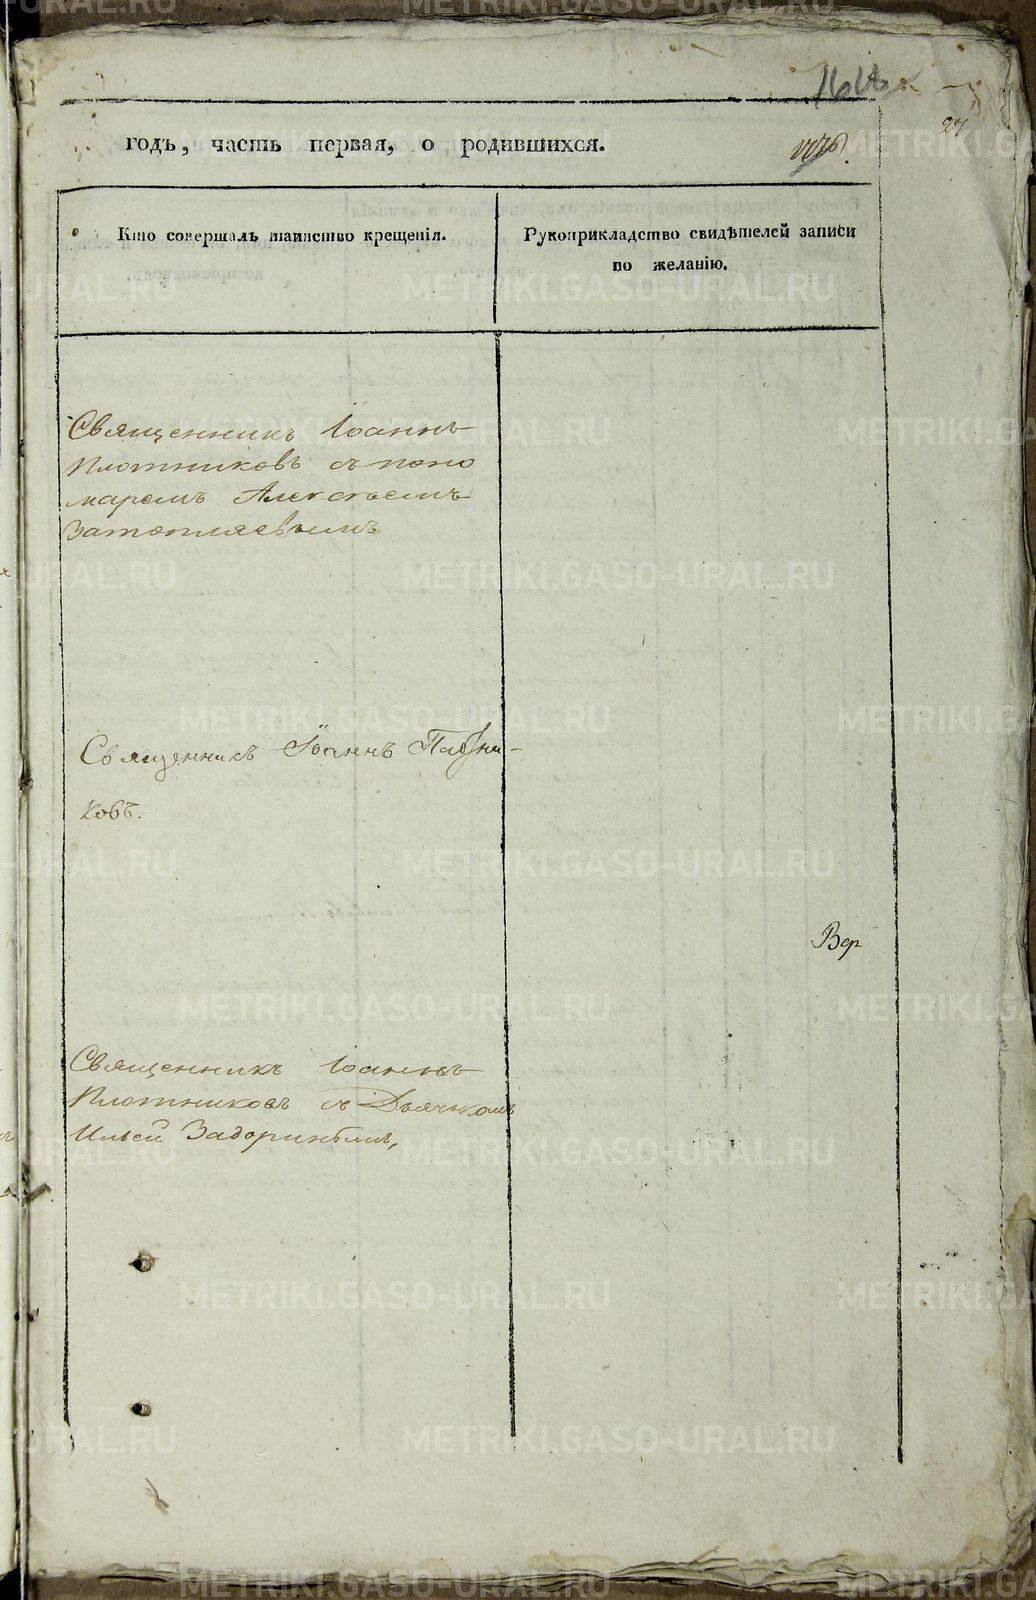 27
годъ, часть первая, о родившихся.
Кто совершалъ таинство крещенія.
Рукоприкладство свидѣтелей записи
по желанію.
Священникъ Іоаннъ
Плотниковъ съ поно
маремъ Алексѣемъ
Затопляевымъ
Священникъ Іоаннъ Плотни-
ковъ.
Вер
Священникъ Іоаннъ
Плотниковъ съ Дьячкомъ
Ильей Задоринымъ,
METRIKI.GASO-URAL.RU